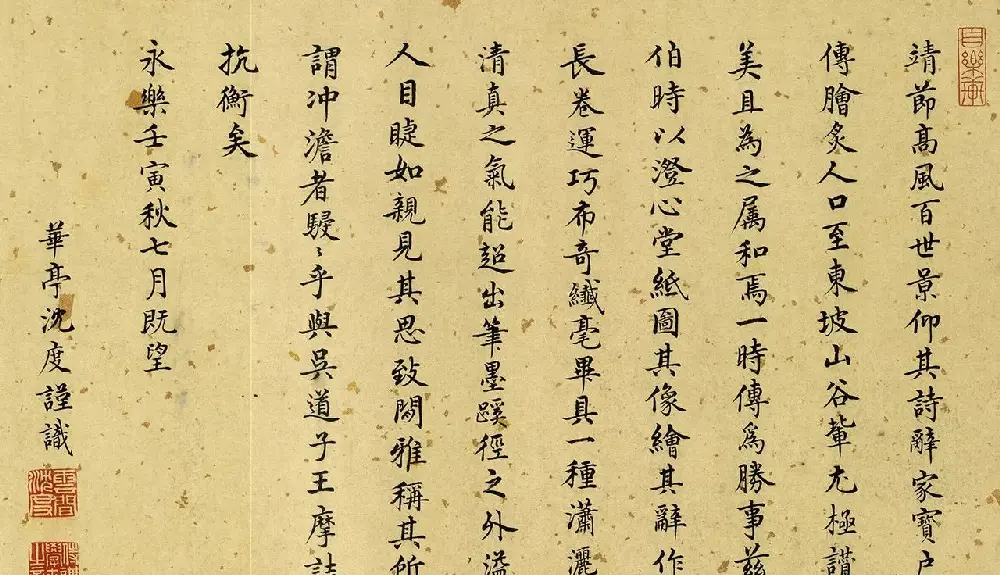 靖節高風百世景仰其詩辭家寶戶
傳膾炙人口至東坡山谷輩尤極讃
美且為之属和焉一時傳爲勝事茲
伯時以澄心堂紙圖其像繪其辭作
長卷運巧布奇纎毫畢具一種瀟灑
清真之氣能超出筆墨蹊徑之外溢
人目睫如親見其思致閒雅稱其所
謂冲澹者駸〻乎與吳道子王摩詰
抗衡矣
永樂壬寅秋七月既望
華亭沈度謹識